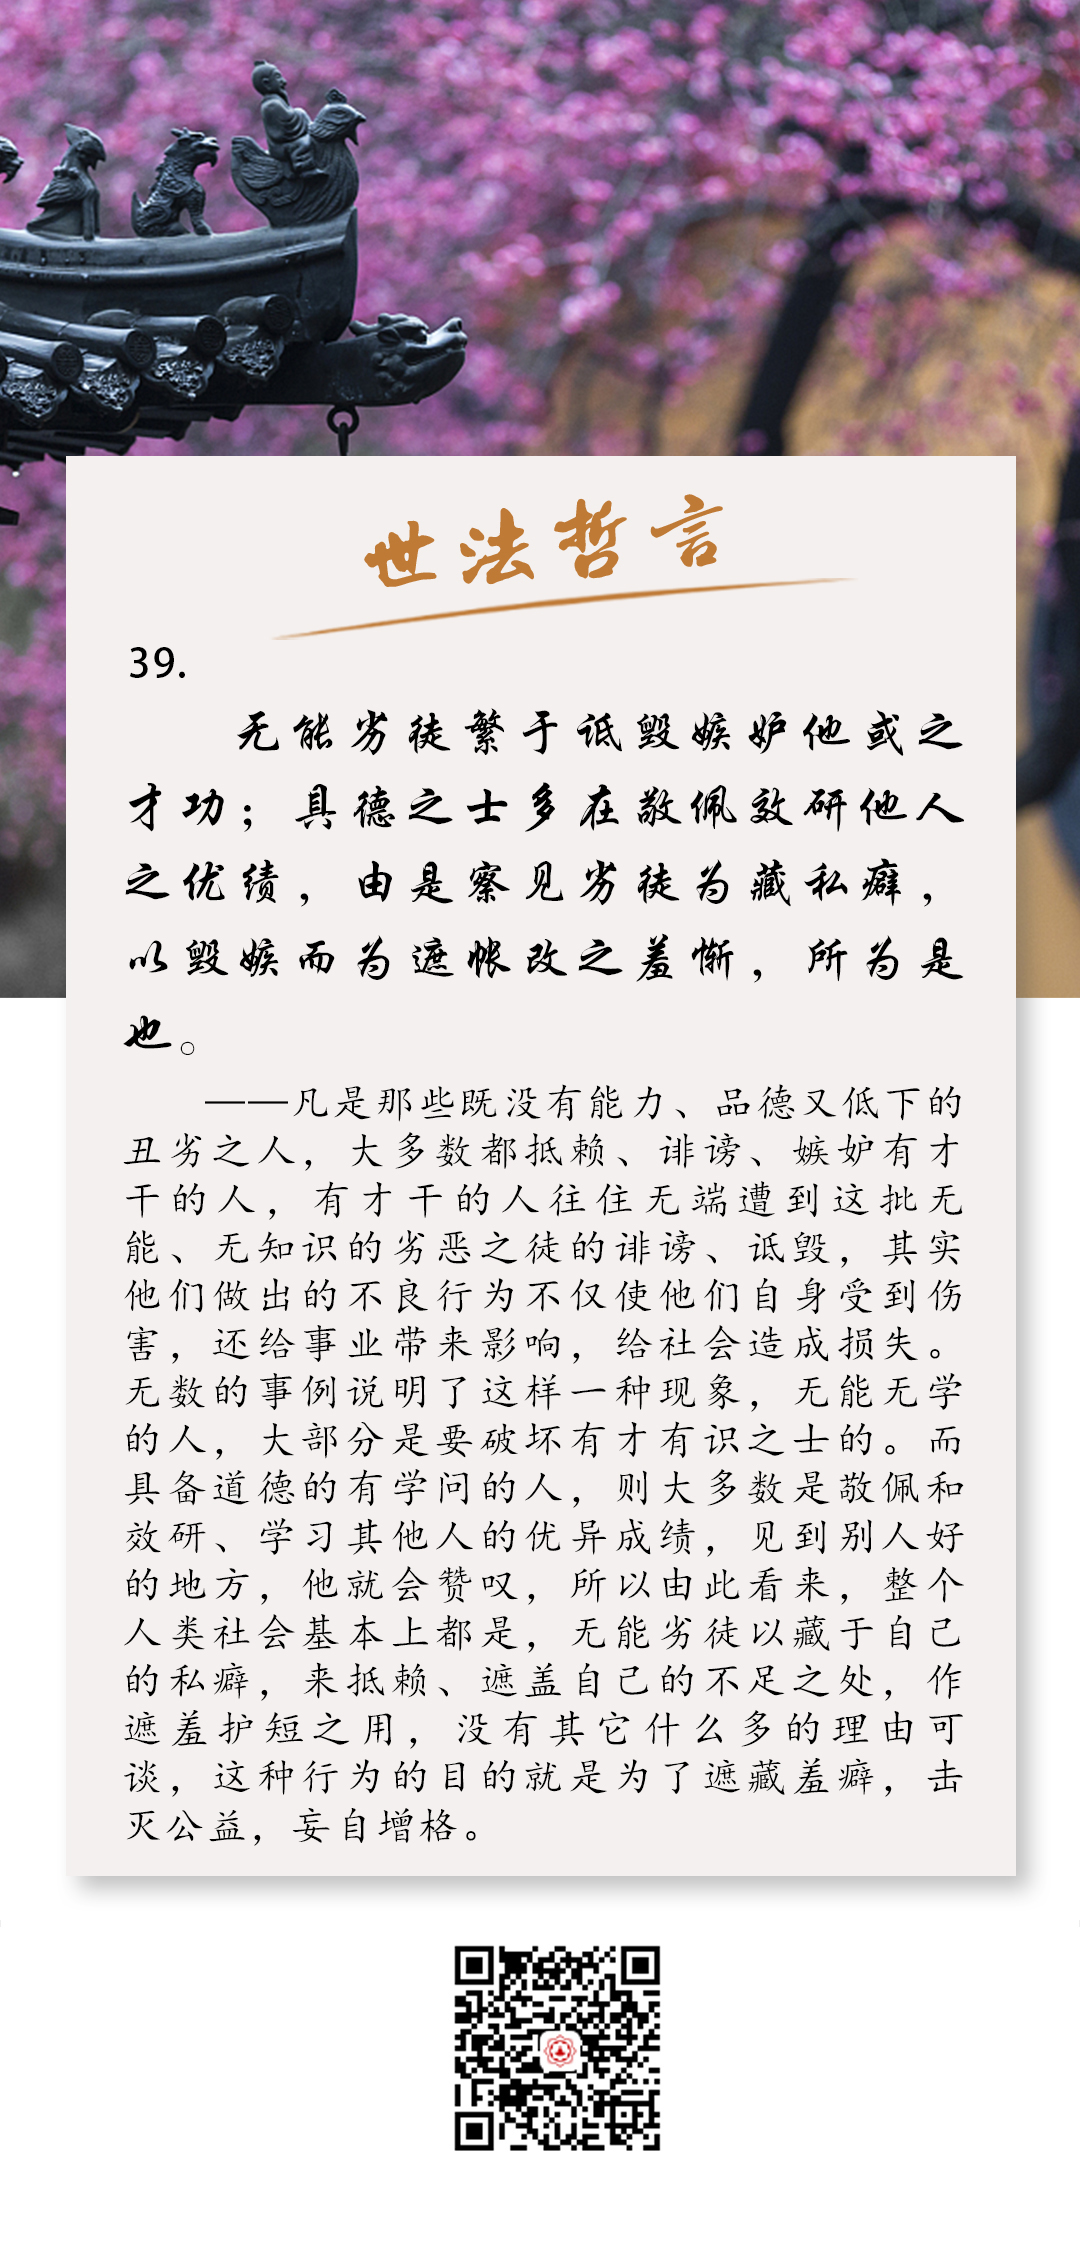 世法哲言
39.
无能劣徒繁于诋毁嫉妒他或之
才功；具德之士多在敬佩效研他人
之优绩，由是察见劣徒为藏私癖，
以毁嫉而为遮帐改之羞惭，所为是
也。
——凡是那些既没有能力、品德又低下的
丑劣之人，大多数都抵赖、诽谤、嫉妒有才
干的人，有才干的人往住无端遭到这批无
能、无知识的劣恶之徒的诽谤、诋毁，其实
他们做出的不良行为不仅使他们自身受到伤
害，还给事业带来影响，给社会造成损失。
无数的事例说明了这样一种现象，无能无学
的人，大部分是要破坏有才有识之士的。而
具备道德的有学问的人，则大多数是敬佩和
效研、学习其他人的优异成绩，见到别人好
的地方，他就会赞叹，所以由此看来，整个
人类社会基本上都是，无能劣徒以藏于自己
的私癖，来抵赖、遮盖自己的不足之处，作
遮羞护短之用，没有其它什么多的理由可
谈，这种行为的目的就是为了遮藏羞癖，击
灭公益，妄自增格。